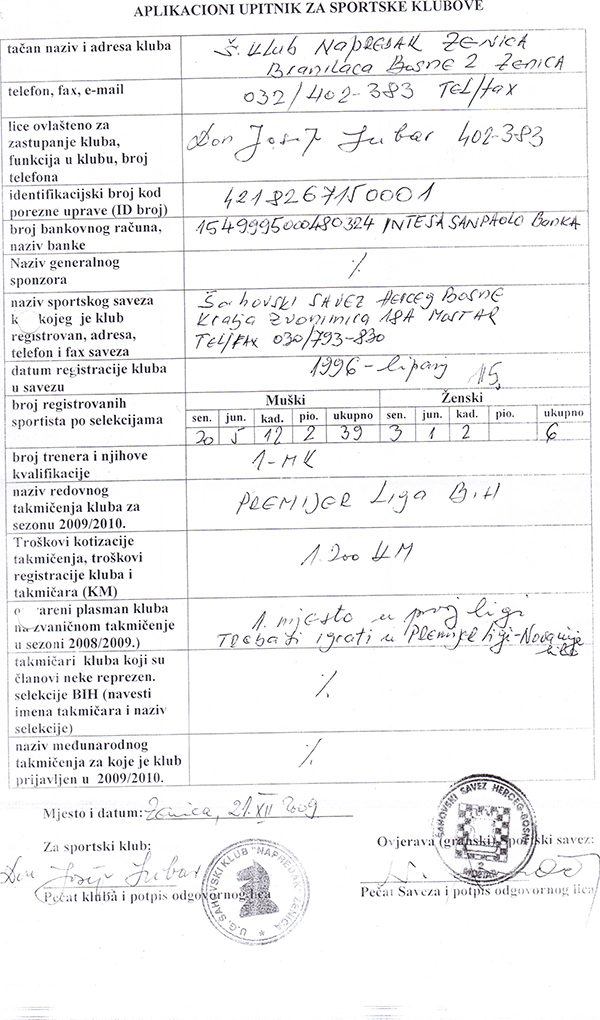 APLIKACIONI UPITNIK ZA SPORTSKE KLUBOVE
tačan naziv i adresa kluba
Š. Klub NAPREDAK ZENICA
Branilaca Bosne 2 ZENICA
telefon, fax, e-mail
032/402-383 TEL/fax
lice ovlašteno za
zastupanje kluba,
funkcija u klubu, broj
telefona
Don Josip Jubar 402-383
identifikacijski broj kod
porezne uprave (ID broj)
4218267150001
broj bankovnog računa,
naziv banke
1549995000480324 INTESA SANPAOLO BANKA
Naziv generalnog
sponzora
٪
naziv sportskog saveza
k kojeg je klub
registrovan, adresa,
telefon i fax saveza
Šahovski SAVEZ HERCEG BOSNE
Kralja Zvonimira 18A MOSTAR
TEL/FAX 030/793-830
datum registracije kluba
u savezu
1996 - lipanj 15.
broj registrovanih
sportista po selekcijama
Muški Ženski
sen. jun. kad. pio. ukupno sen. jun. kad. pio. ukupno
20 5 12 2 39 3 1 2 6
broj trenera i njihove
kvalifikacije
1-MK
naziv redovnog
takmičenja kluba za
sezonu 2009/2010.
PREMIJER Liga BiH
Troškovi kotizacije
takmičenja, troškovi
registracije kluba i
takmičara (KM)
1.200 KM
o areni plasman kluba
na zvaničnom takmičenje
u sezoni 2008/2009.)
1. mjesto u prvoj ligi
Trebati igrati u PREMIJER ligi-
takmičari kluba koji su
članovi neke reprezen.
selekcije BIH (navesti
imena takmičara i naziv
selekcije)
٪
naziv međunarodnog
takmičenja za koje je klub
prijavljen u 2009/2010.
٪
Mjesto i datum: Zenica, 21. XII 2009
Za sportski klub:
Ovjerava (granski) sportski savez:
Don Josip Jubar
Pečat kluba i potpis odgovornog lica
Pečat Saveza i potpis odgovornog lica
U.G. ŠAHOVSKI KLUB "NAPREDAK" ZENICA
ŠAHOVSKI SAVEZ HERCEG-BOSNE
2
MOSTAR